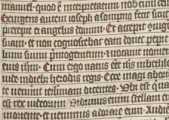 manuel: quod e interpretatum nobiscum deus
Exurgens autem ioseph a sompno fecit sicut
precepit ei angelus domini: et accepit coniug
suam et non cognoscebat eam donec peperit
lium suum primogenitum: et vocavit nomen
eius ihm. Cum ergo natus esset ihs in bethleem
iude in diebus herodis regis: ecce magi ab orien
te venerunt dicentes. Ubi est qui
est rex iudeorum. Vidimus enim stellam
oriente: et venimus adorare eum. Audi